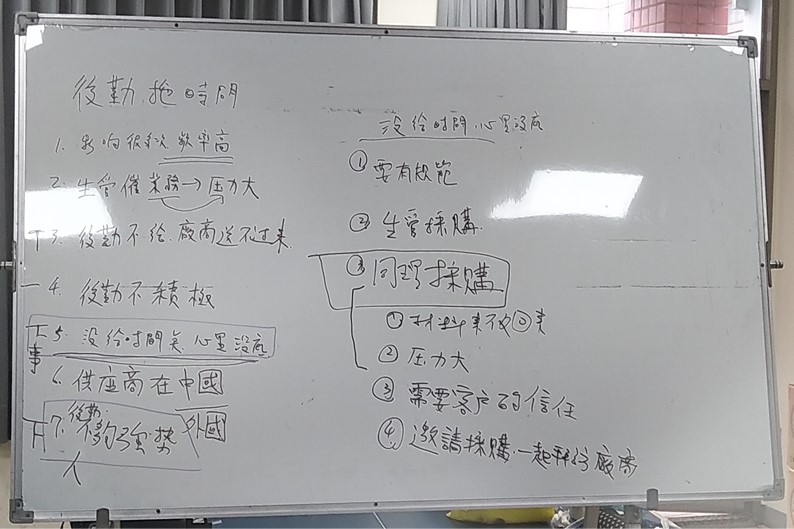 後勤拖時間
1. 影响很多次 頻率高
2. 生管催業務→压力大
T 3. 後勤不给.廠商送不过来
一 4. 後勤不積極
T 5. 没给时間矣.心里没底
事
6. 供应商在中國
外國
T 7. 後勤.不夠強势
人
没给时間.心里没底
① 要有規範
② 生管採購.
③ 同理採購
① 材料来不及来
② 压力大
③ 需要客户的信任
④ 邀請採購.一起拜訪廠商